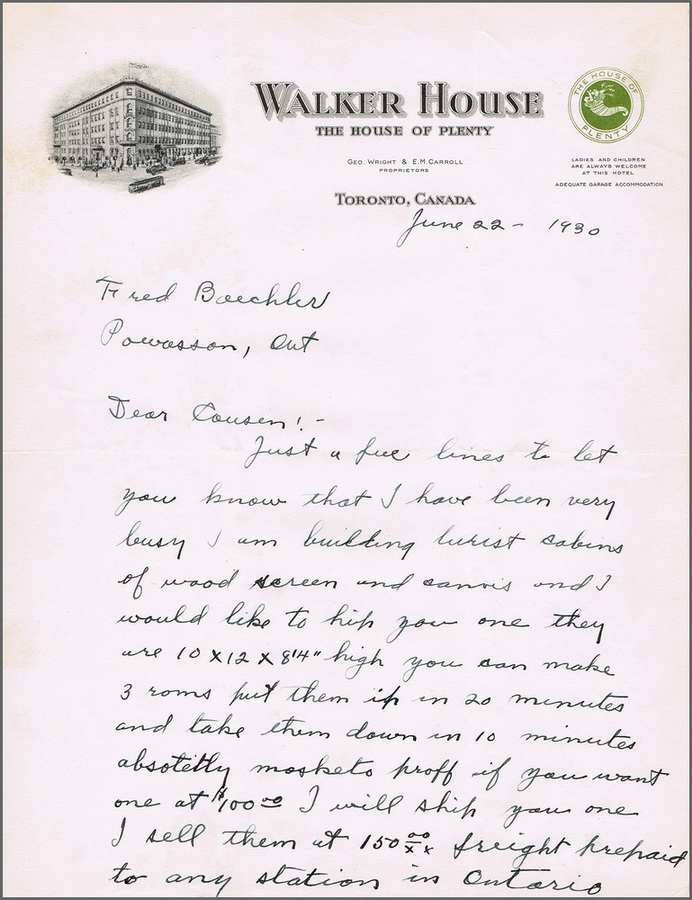 WALKER HOUSE
THE HOUSE OF PLENTY
GEO. WRIGHT & E.M. CARROLL
PROPRIETORS
TORONTO, CANADA
THE HOUSE OF PLENTY
LADIES AND CHILDREN
ARE ALWAYS WELCOME
AT THIS HOTEL
ADEQUATE GARAGE ACCOMMODATION
June 22 - 1930
Fred Boechler
Powasson, Ont
Dear Cousen! -
Just a few lines to let
you know that I have been very
busy I am building turist cabins
of wood screen and canvis and I
would like to hip you one they
are 10 x 12 x 8'4" high you can make
3 roms put them up in 20 minutes
and take them down in 10 minutes
absotetly mosketo proff if you want
one at $100 00 I will ship you one
I sell them at 150 00/xx freight prepaid
to any station in Ontario